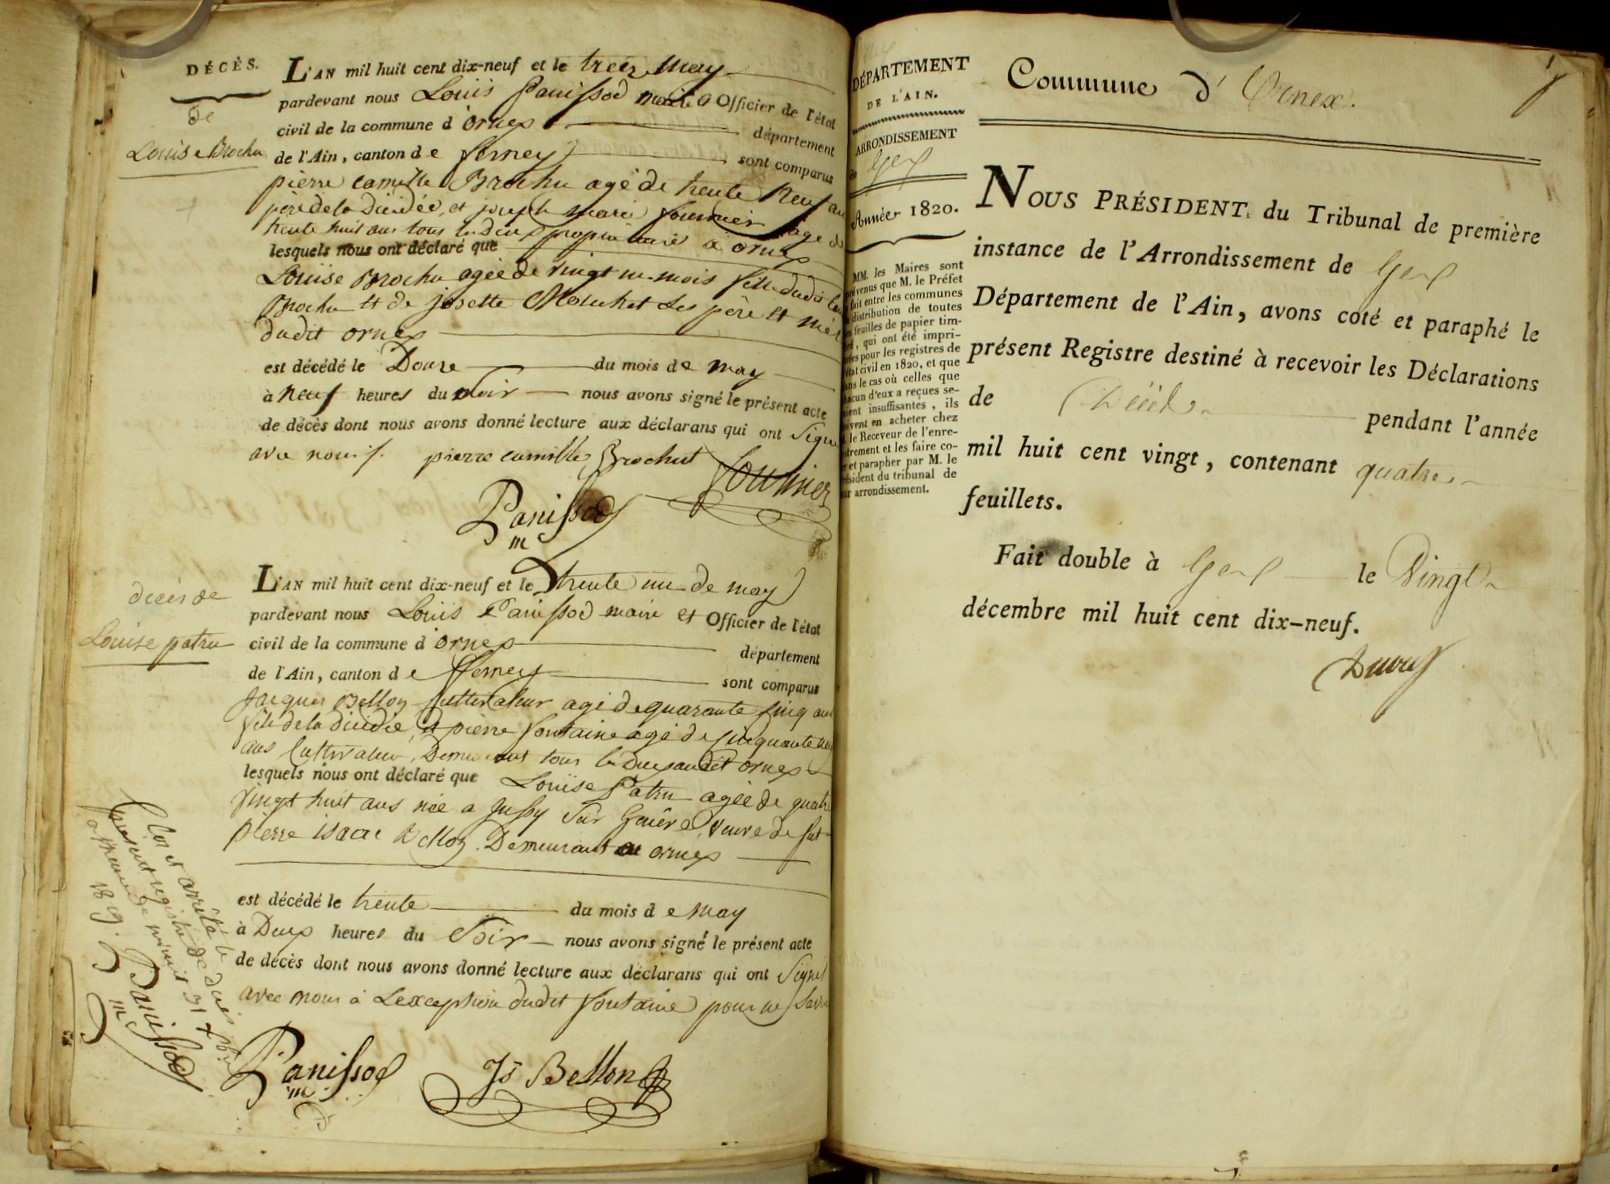 DÉCÈS.
de
Louise Brochu
L'AN mil huit cent dix-neuf et le treize May
pardevant nous Louis Panissod maire & Officier de l'état
civil de la commune d'ornex département
de l'Ain, canton de ferney sont comparus
pierre camille Brochu agé de trente neuf ans
père de la dicédée, et joseph marie fournier agé de
trente huit ans tous les deux propriétaires a ornex
lesquels nous ont déclaré que
Louise Brochu agée de vingt un mois fille dudit
Brochu et de josette Mouchet ses père et mère
dudit ornex
est décédé le Douze du mois de may
à neuf heures du soir nous avons signé le présent acte
de décès dont nous avons donné lecture aux déclarans qui ont Signé
avec nous /. pierre camille Brochut fournier
Panissod
m
décès de
Louise patru
L'AN mil huit cent dix-neuf et le trente un de may
pardevant nous Louis Panissod maire et Officier de l'état
civil de la commune d'ornex département
de l'Ain, canton de ferney sont comparus
Jacques Bellon Cultivateur agé de quarante cinq ans
fils de la dicédée, & pierre fontaine agé de cinquante
ans Cultivateur, Demeurant tous les deux audit ornex
lesquels nous ont déclaré que Louise Patru agée de quatre
vingt huit ans née a Jussy Sur Genève, veuve de fut
pierre isaac Bellon. Demeurant a ornex
est décédé le trente du mois de May
à Deux heures du Soir nous avons signé le présent acte
de décès dont nous avons donné lecture aux déclarans qui ont Signé
avec nous à Lexception dudit fontaine pour ne Savoir
Panissod Js Bellon
m
Clos et arrêté le
présent registre de décès
a ornex de minuit 31 Xbre
1819.
Panissod
m
DÉPARTEMENT
DE L'AIN.
ARRONDISSEMENT
de Gex
Année 1820.
MM. les Maires sont
prévenus que M. le Préfet
fait entre les communes
distribution de toutes
feuilles de papier tim-
bré, qui ont été impri-
mées pour les registres de
l'état civil en 1820, et que
dans le cas où celles que
chacun d'eux a reçues se-
roient insuffisantes, ils
peuvent en acheter chez
le Receveur de l'enre-
gistrement et les faire co-
ter et parapher par M. le
Président du tribunal de
leur arrondissement.
Commune d'Ornex.
NOUS PRÉSIDENT du Tribunal de première
instance de l'Arrondissement de Gex
Département de l'Ain, avons coté et paraphé le
présent Registre destiné à recevoir les Déclarations
de Décès pendant l'année
mil huit cent vingt, contenant quatre
feuillets.
Fait double à Gex le Vingt
décembre mil huit cent dix-neuf.